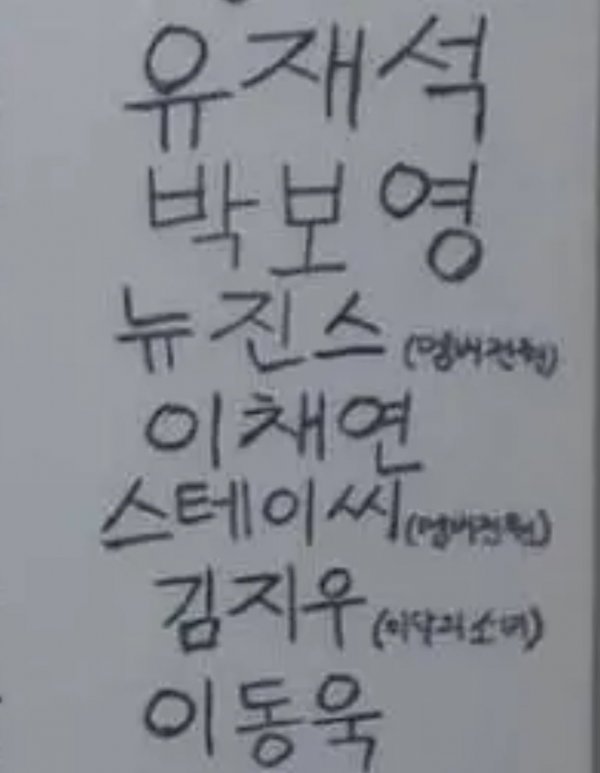 유재석
박보영
뉴진스 (멤버전원)
이채연
스테이씨 (멤버전원)
김지우 (이달의소녀)
이동욱